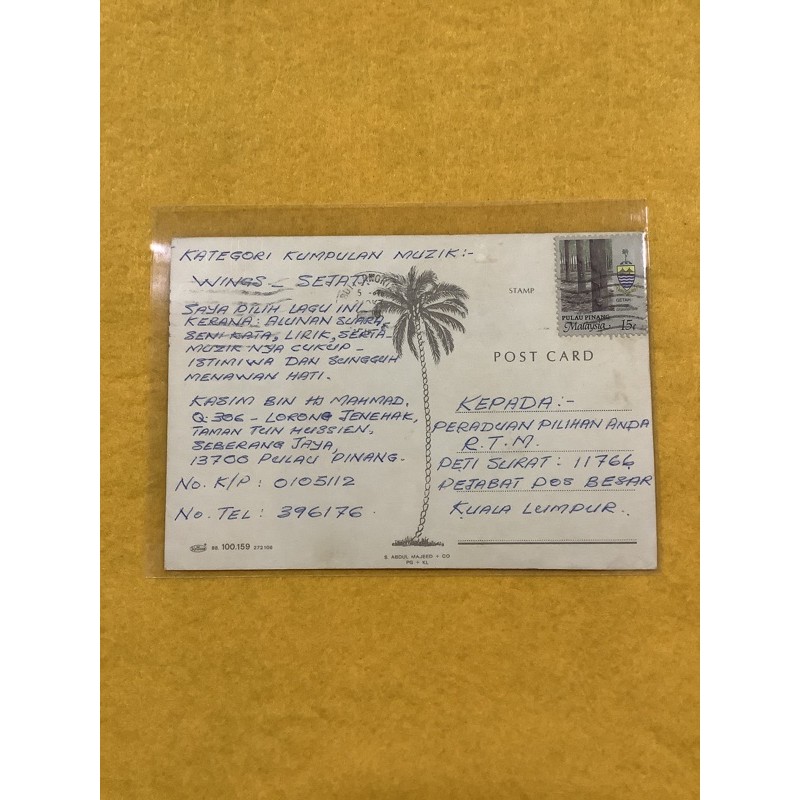 KATEGORI KUMPULAN MUZIK:-
WINGS - SEJATI
SAYA PILIH LAGU INI
KERANA: ALUNAN SUARA,
SENI KATA, LIRIK, SERTA
MUZIK NYA CUKUP
ISTIMIWA DAN SUNGGUH
MENAWAN HATI.
KASIM BIN HJ MAHMAD,
Q:306 - LORONG JENEHAK,
TAMAN TUN HUSSIEN,
SEBERANG JAYA,
13700 PULAU PINANG.
No. K/P : 0105112
No. TEL : 396176.
88. 100.159 272106
S. ABDUL MAJEED + CO
PG + KL
STAMP
PULAU PINANG
Malaysia 15¢
POST CARD
KEPADA:-
PERADUAN PILIHAN ANDA
R.T.M.
PETI SURAT : 11766
PEJABAT POS BESAR
KUALA LUMPUR.